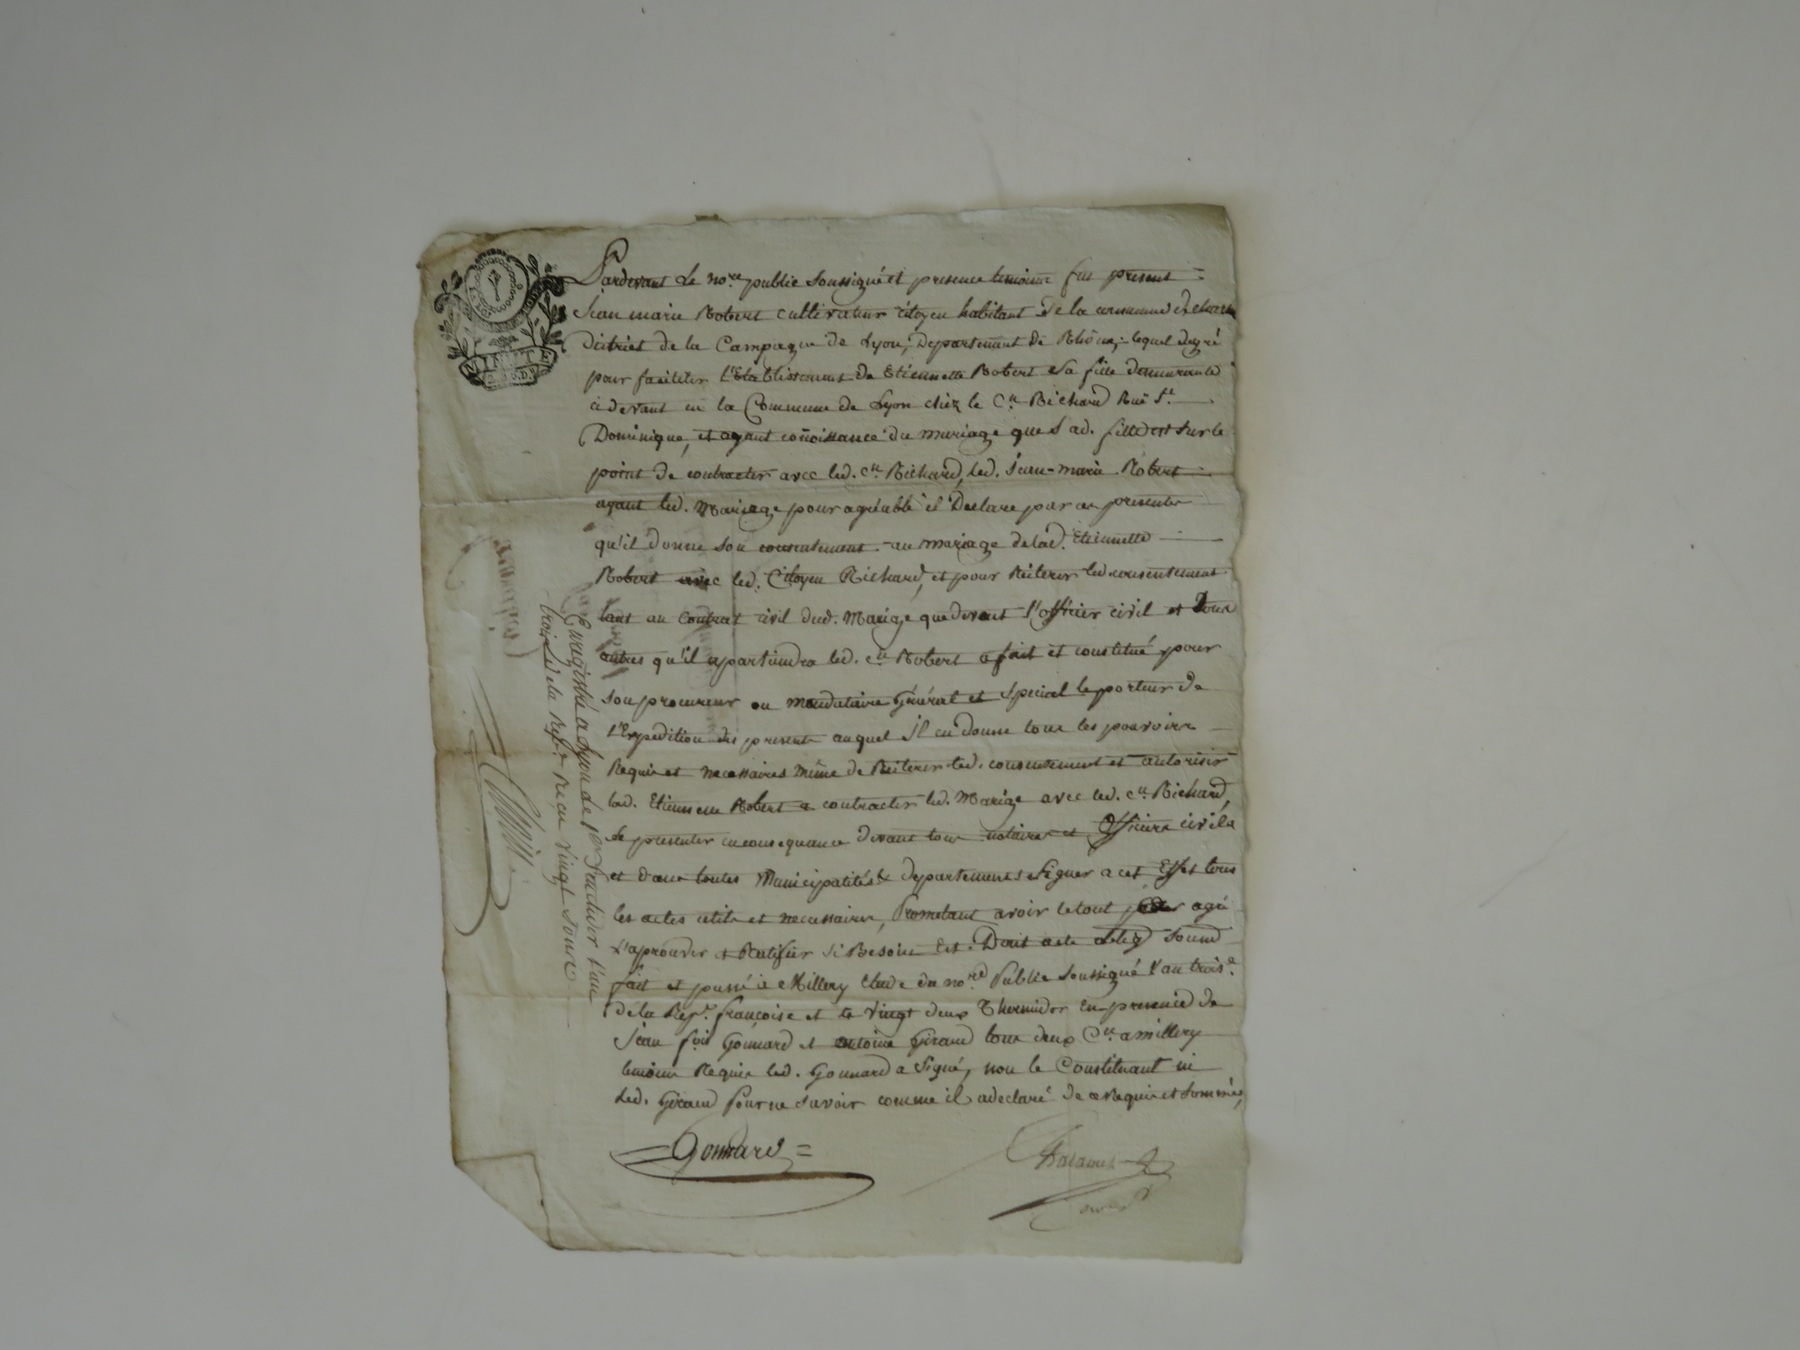 Pardevant Le no.re public soussigné et presence temoins fut present
Jean marie Robert cultivateur citoyen habitant de la commune de
district de la Campagne de Lyon, departement de Rhône, lequel degré
pour faciliter l'Etablissement de Etiennette Robert sa fille demeurante
ci devant en la Commune de Lyon chez le C.n Richard Rue S.t
Dominique, et ayant conoissance du mariage que lad. fille est sur le
point de contracter avec led. c.n Richard, led. Jean-marie Robert
ayant led. Mariage pour agréable il Declare par ces presentes
qu'il donne son consentement au mariage de lad. Etiennette
Robert avec led. Citoyen Richard, et pour Reiterer led. consentement
tant au Contrat civil dud. Mariage que devant l'officier civil et tous
autres qu'il apartiendra led. c.n Robert a fait et constitué pour
son procureur ou mandataire Général et special le porteur de
l'Expedition des presentes auquel il en donne tous les pouvoirs
Requis et necessaires même de Reiterer led. consentement et autoriser
lad. Etiennette Robert a contracter led. Mariage avec led. c.n Richard,
se presenter en consequance devant tous notaires et Officiers civils
et dans toutes Municipalités & departements signer a cet Effet tous
les actes utiles et necessaires, Prometant avoir le tout pour agré
l'aprouver et Ratifier si Besoin Est. Dont acte
fait et passé à Millery Etude du no.re Public soussigné l'an trois.e
de la Rep.e françoise et le vingt deux Thermidor En presence de
Jean f.ois Gonnard et antoine Giraud tous deux C.ns a millery
temoins Requis led. Gonnard a signé, non le Constituant ni
led. Giraud pour ne savoir comme il a declaré de ce Requis et sommés,
Gonnard
Enregistré a Lyon le 1er fructidor l'an
trois de la Rep.e Reçu vingt sous